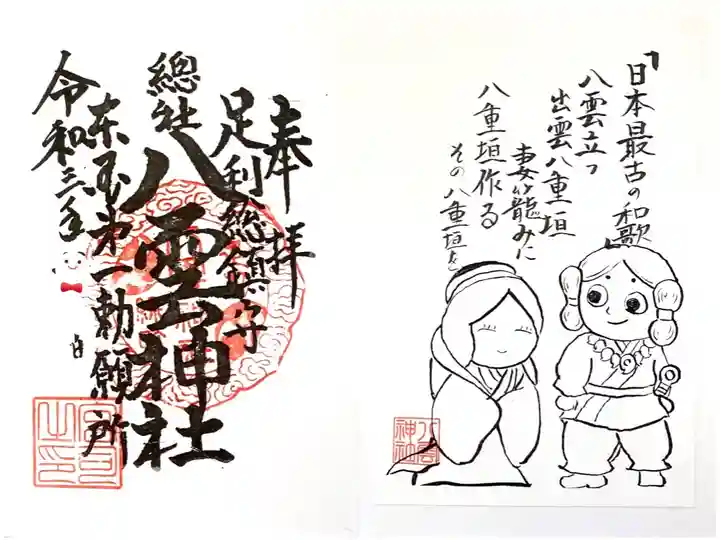 奉拝
足利總鎮守
總社
八雲神社
東国第一勅願所
令和三年
日
宮司之印
「日本最古の和歌」
八雲立つ
出雲八重垣
妻籠みに
八重垣作る
その八重垣を
八雲神社